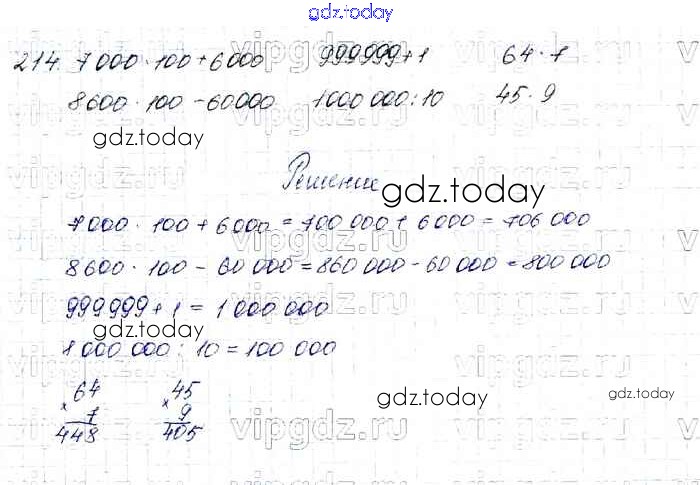 gdz.today
214. 7000 · 100 + 6000 999999 + 1 64 · 7
8600 · 100 - 60000 1000 000 : 10 45 · 9
gdz.today
Решение
gdz.today
7000 · 100 + 6000 = 700 000 + 6000 = 706 000
8600 · 100 - 60 000 = 860 000 - 60 000 = 800 000
999999 + 1 = 1 000 000
gdz.today
1 000 000 : 10 = 100 000
64 45
× 7 × 9
448 405
gdz.today
gdz.today
vipgdz.ru